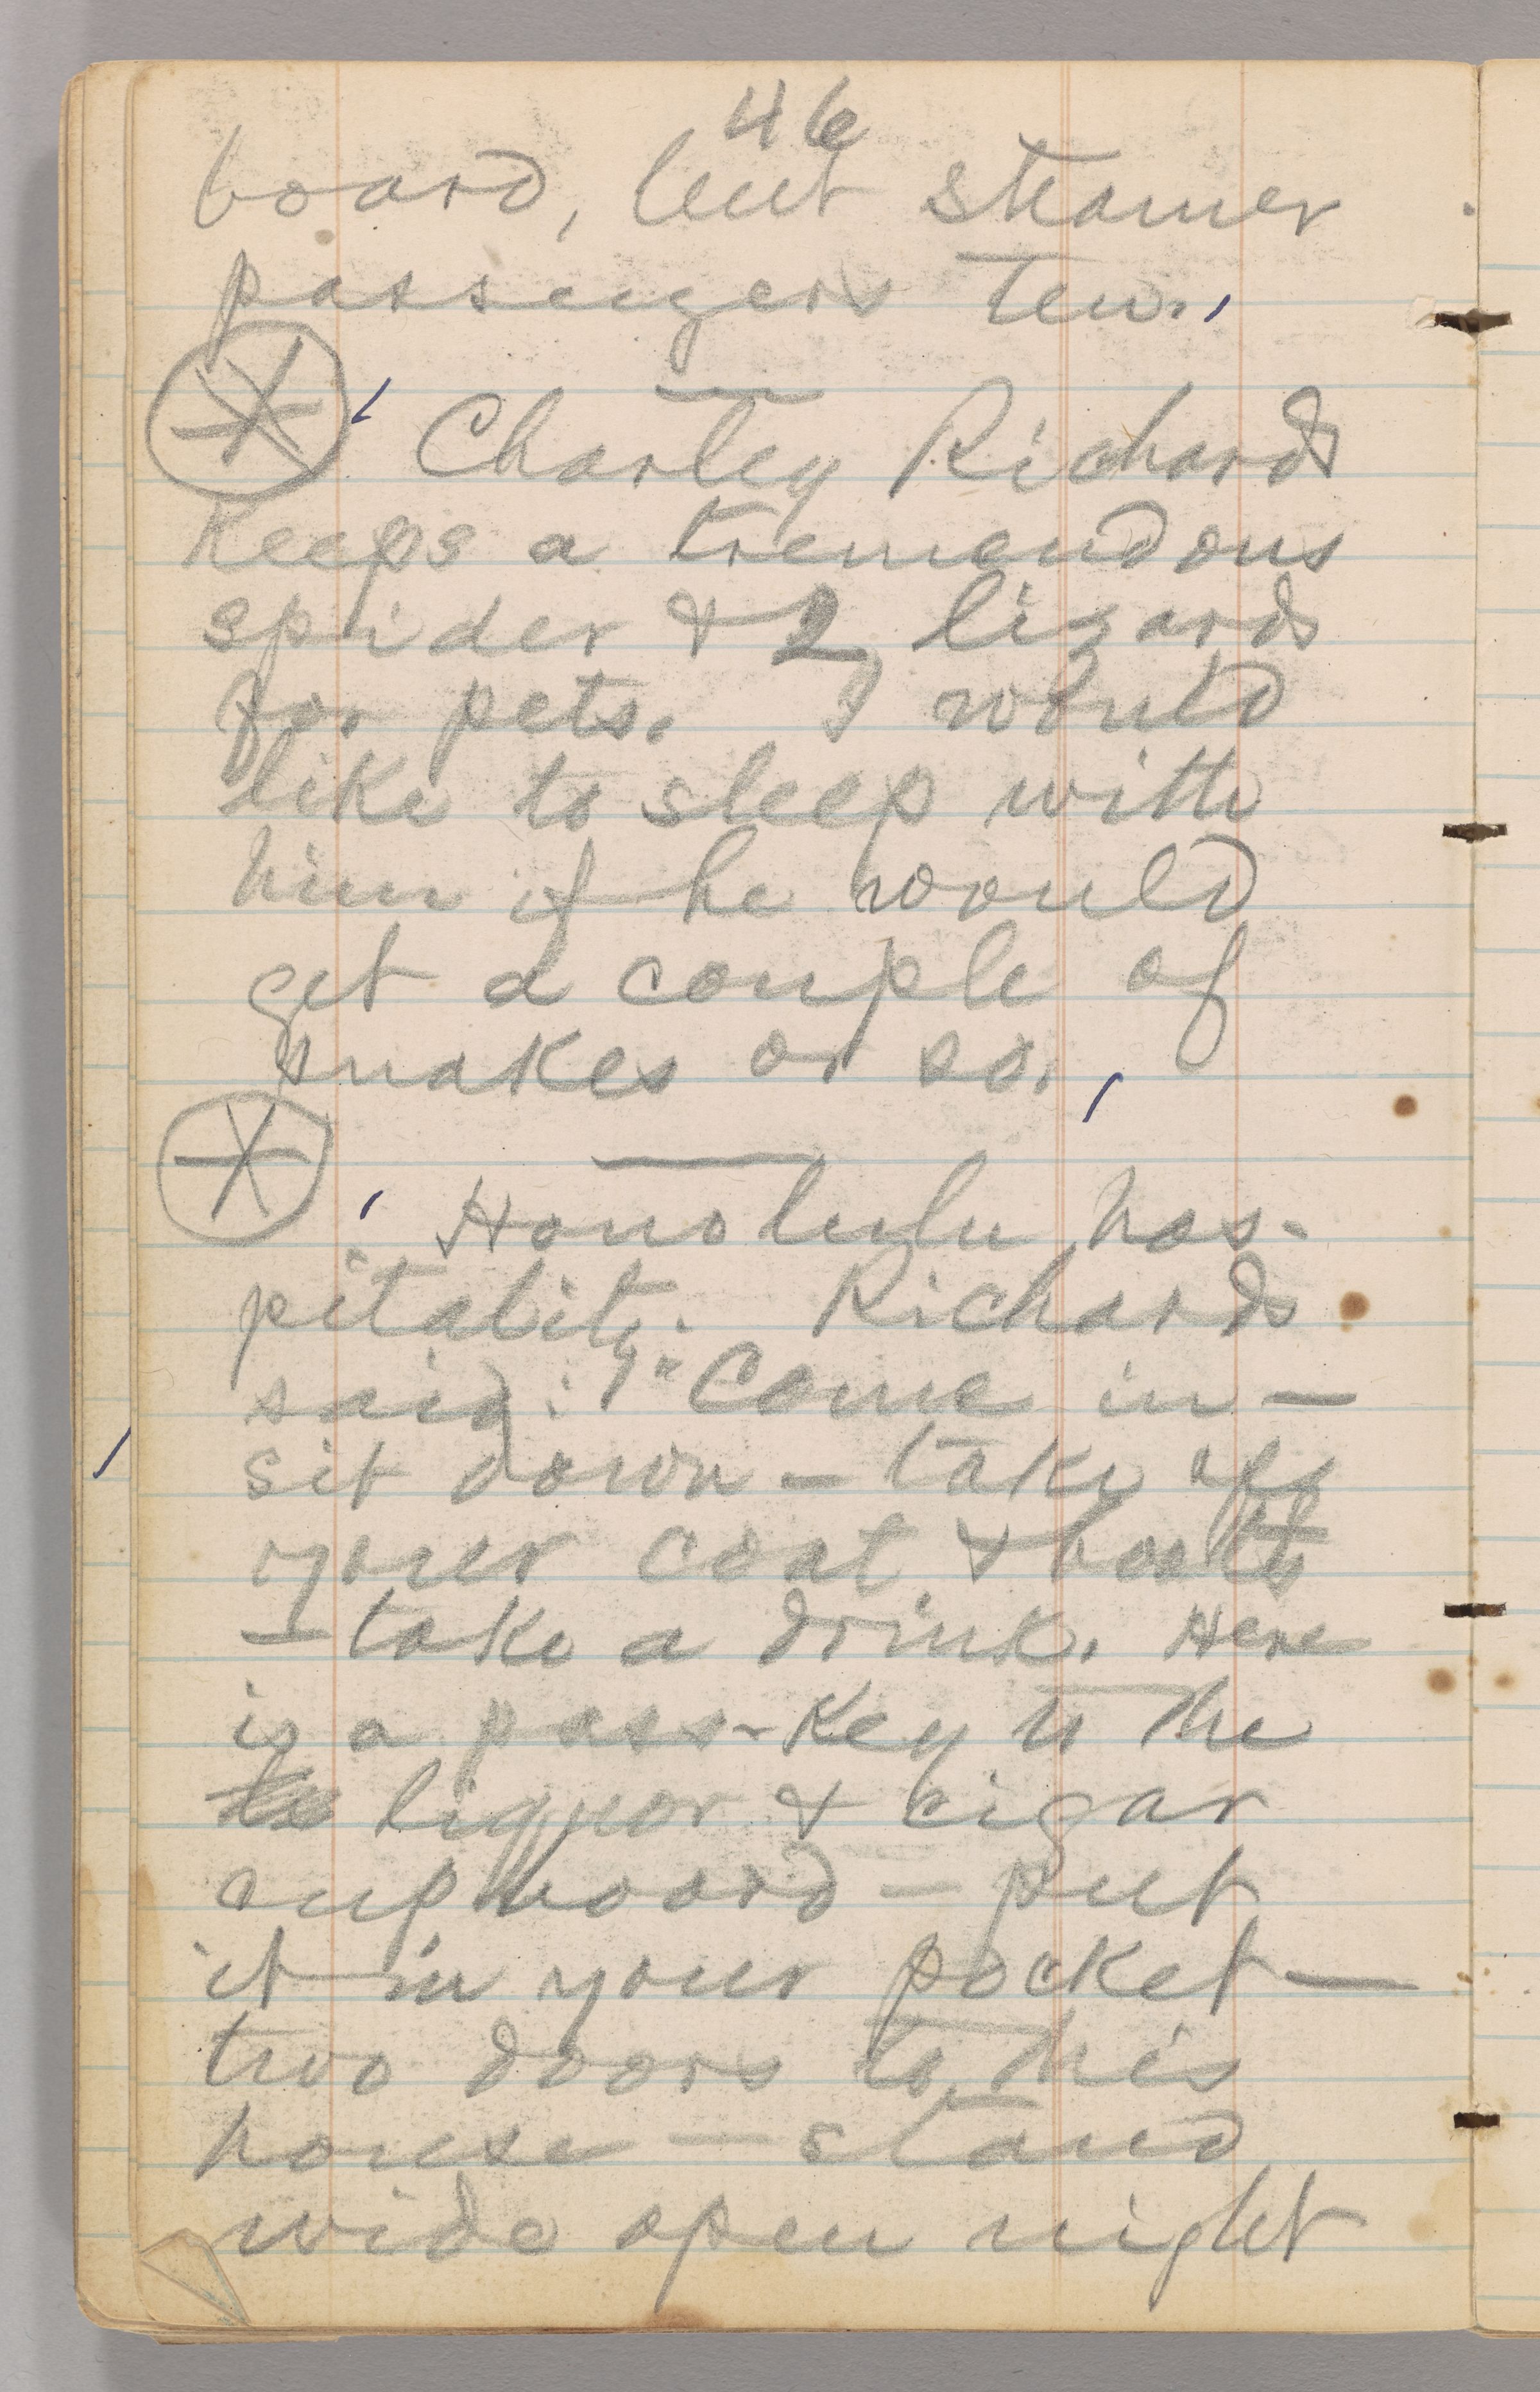 46
board, but steamer
passengers ten.
Charley Richards
keeps a tremendous
spider & 2 lizards
for pets. I would
like to sleep with
him if he would
get a couple of
snakes or so.
Honolulu hos-
pitality. Richards
said: "Come in —
sit down — take off
your coat & boots
— take a drink. Here
is a pass-key to the
liquor & cigar
cupboard — put
it in your pocket —
two doors to this
house — stand
wide open night